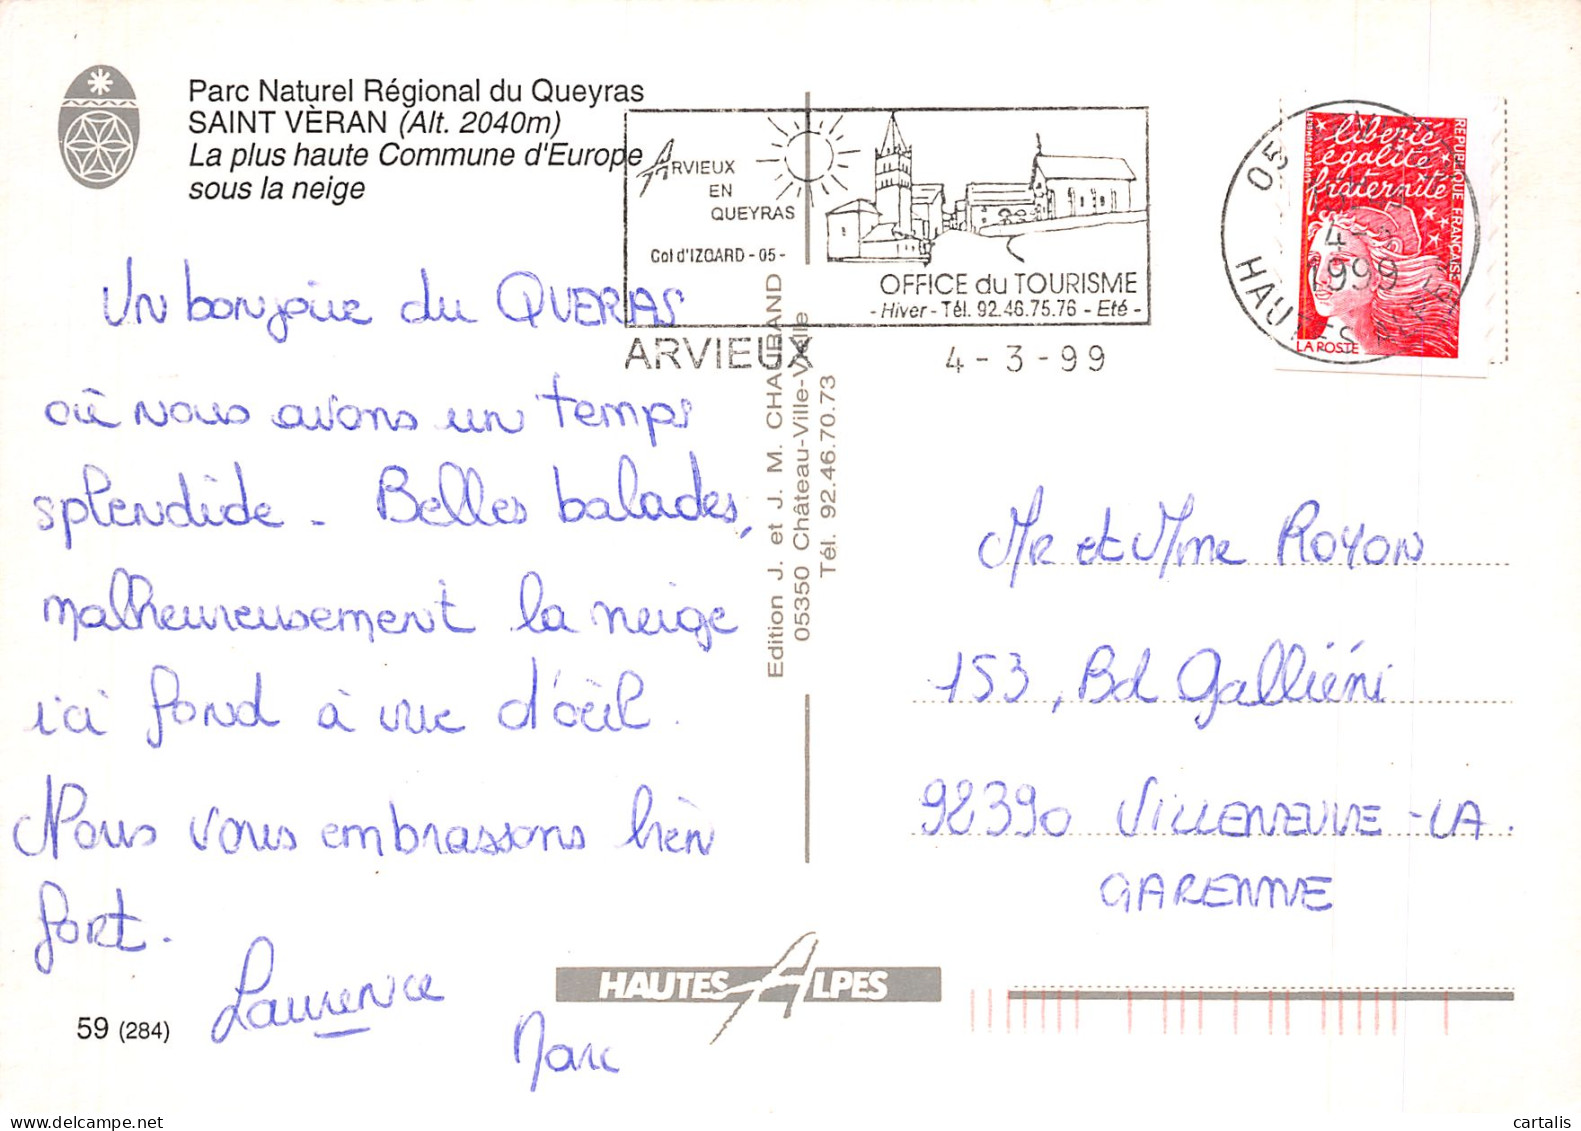 Parc Naturel Régional du Queyras
SAINT VÈRAN (Alt. 2040m)
La plus haute Commune d'Europe
sous la neige
ARVIEUX
EN
QUEYRAS
Col d'IZOARD - 05 -
OFFICE du TOURISME
- Hiver - Tél. 92.46.75.76 - Eté -
ARVIEUX
4 - 3 - 99
05
4 -
1999
HAUTES ALPES
liberté
égalité
fraternité
REPUBLIQUE FRANÇAISE
LA POSTE
Un bonjour du QUERIAS
où nous avons un temps
splendide - Belles balades,
malheureusement la neige
ici fond à vue d'œil.
Nous vous embrassons bien
fort.
Laurence
Marc
Edition J. et J. M. CHABRAND
05350 Château-Ville-Vieille
Tél. 92.46.70.73
Mr et Mme ROYON
153, Bd Galliéni
92390 VILLENEUVE - LA
GARENNE
HAUTES ALPES
59 (284)
delcampe.net
cartalis